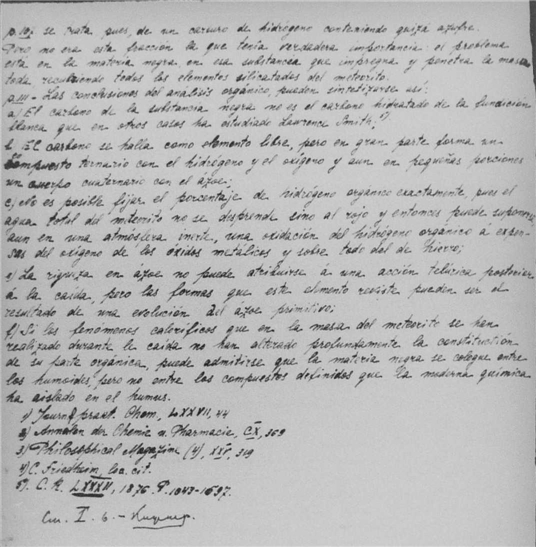 p.107 se trata pues, de un carburo de hidrógeno conteniendo quizá azufre.
Pero no era esta fraccion la que tenia verdadera importancia: el problema
esta en la materia negra, en esa substancia que impregna y penetra la masa
toda recubriendo todos los elementos silicatados del meteorito.
p.111 - Las conclusiones del análisis orgánico, pueden sintetizarse así:
a) El carbono de la substancia negra no es el carbono hidratado de la fundición
blanca que en otros casos ha estudiado Lawrence Smith; 5)
b. El carbono se halla como elemento libre, pero en gran parte forma un
compuesto ternario con el hidrógeno y el oxígeno y aun en pequeñas porciones
un cuerpo cuaternario con el ázoe;
c) No es posible fijar el porcentaje de hidrógeno orgánico exactamente, pues el
agua total del meteorito no se desprende sino al rojo y entonces puede suponerse
aun en una atmósfera inerte, una oxidación del hidrógeno orgánico á expen-
sas del oxígeno de los óxidos metálicos y sobre todo del de hierro;
e) La riqueza en ázoe no puede atribuirse á una acción telúrica posterior
á la caida, pero las formas que este elemento reviste pueden ser el
resultado de una evolución del ázoe primitivo;
f) Si los fenómenos caloríficos que en la masa del meteorito se han
realizado durante le caida no han alterado profundamente la constitución
de su parte orgánica, puede admitirse que la materia negra se coloque entre
los humoides, pero no entre los compuestos definidos que la moderna química
ha aislado en el humus.
1) Journ f. prakt. Chem, LXXVII, 44
2) Annalen der Chemie u. Pharmacie, CX, 369
3) Philosophical Magazine (4), XXV, 319
4) C. Friedheim, loc. cit.
5). C. R. LXXXII, 1876. P. 1043-1697.
I. 6. -